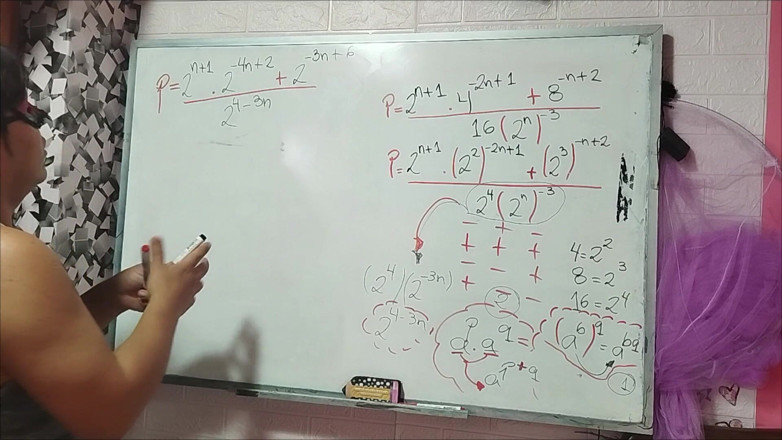 P = 2^{n+1} · 2^{-4n+2} + 2^{-3n+6}
2^{4-3n}
P = 2^{n+1} · 4^{-2n+1} + 8^{-n+2}
16(2^n)^{-3}
P = 2^{n+1} · (2^2)^{-2n+1} + (2^3)^{-n+2}
2^4(2^n)^{-3}
- + -
+ + +
- - +
+ - -
4 = 2^2
8 = 2^3
16 = 2^4
(2^4)(2^{-3n})
2^{4-3n}
2
a^p · a^q =
a^{p+q}
(a^b)^q = a^{bq}
1